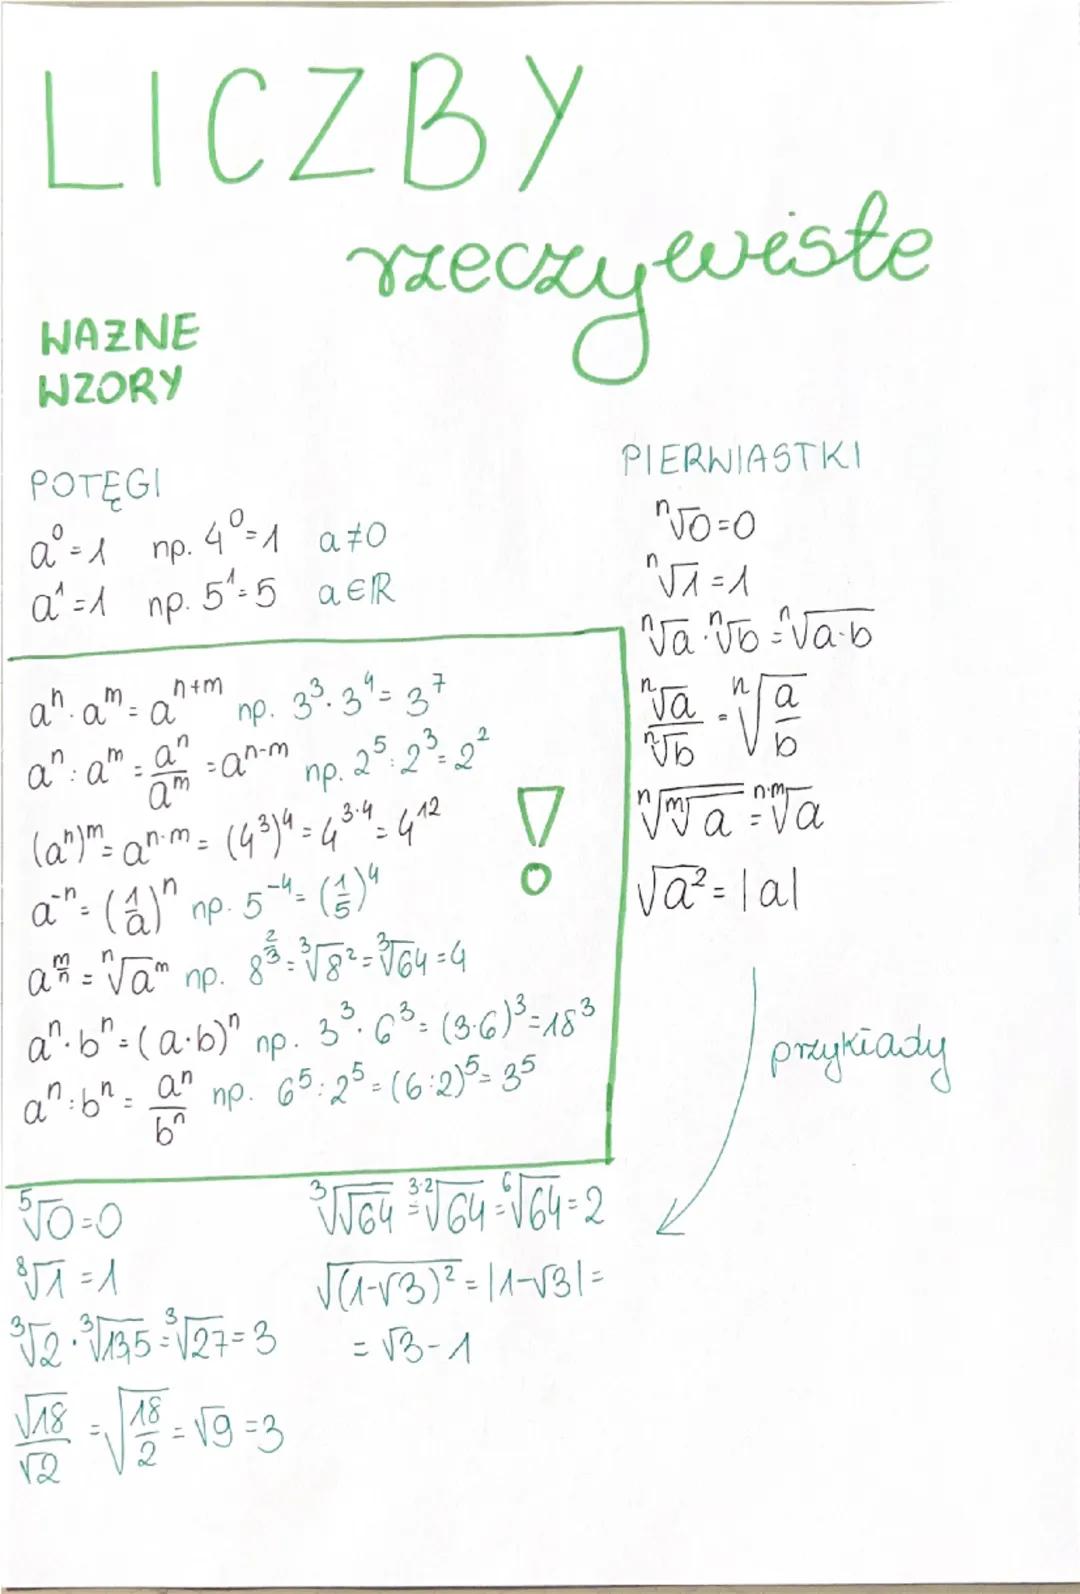 LICZBY
rzeczywiste
WAŻNE
WZORY
POTĘGI
a⁰=1 np. 4⁰=1 a≠0
a¹=1 np. 5¹=5 a∈R
aⁿ·aᵐ=aⁿ⁺ᵐ np. 3³·3⁴=3⁷
aⁿ:aᵐ=aⁿ/aᵐ=aⁿ⁻ᵐ np. 2⁵:2³=2²
(aⁿ)ᵐ=aⁿ·ᵐ=(4³)⁴=4^(3·4)=4¹²
a⁻ⁿ=(1/a)ⁿ np. 5⁻⁴=(1/5)⁴
a^(m/n)=ⁿ√aᵐ np. 8^(2/3)=³√8²=³√64=4
aⁿ·bⁿ=(a·b)ⁿ np. 3³·6³=(3·6)³=18³
aⁿ:bⁿ=aⁿ/bⁿ np. 6⁵:2⁵=(6:2)⁵=3⁵
!
PIERWIASTKI
ⁿ√0=0
ⁿ√1=1
ⁿ√a·ⁿ√b=ⁿ√a·b
ⁿ√a/ⁿ√b=ⁿ√(a/b)
ⁿ√ᵐ√a=ⁿ·ᵐ√a
√a²=|a|
przykłady
⁵√0=0
⁸√1=1
³√2·³√13,5=³√27=3
√18/√2=√(18/2)=√9=3
³√√64=³·²√64=⁶√64=2
√(1-√3)²=|1-√3|=
=√3-1